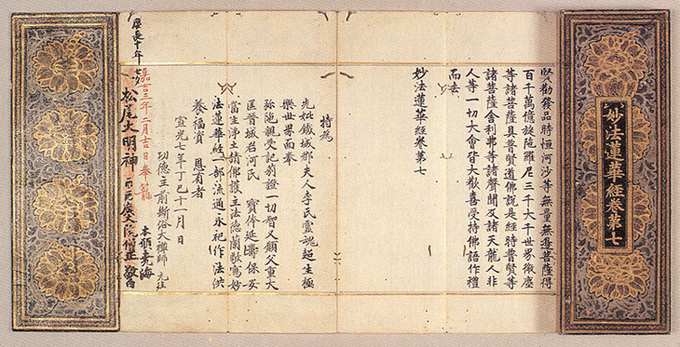 妙法蓮華經卷第七
賢勸發品時恒河沙等無量無邊菩薩得
百千萬億旋陁羅尼三千大千世界微塵
等諸菩薩具普賢道佛說是經時普賢等
諸菩薩舍利弗等諸聲聞及諸天龍人非
人等一切大會皆大歡喜受持佛語作禮
而去
妙法蓮華經卷第七
特為
先妣鐵城郡夫人李氏靈魂超生極
樂世界面奉
弥陁親受記莂證一切智又願父重大
匡晉城君河氏 寶體延壽保安
當生淨土請佛護立法德蘭敬寫妙
法蓮華經一部流通永祀作法供
養福資 恩有者
宣光七年丁巳十一月 日
功德主前斯俗大禪師 元珪
本願堯海
嘉吉三年二月吉日奉籠
松尾大明神
慶長十年